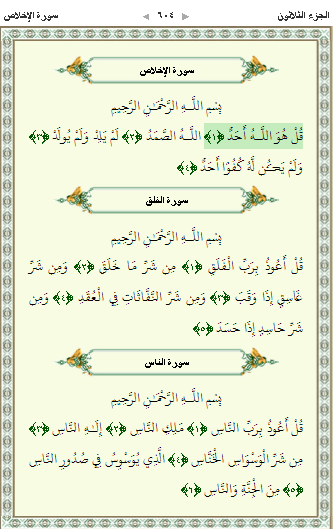 الجزء الثلاثون ٦٠٤ سورة الإخلاص
سورة الإخلاص
بِسْمِ اللَّـهِ الرَّحْمَـٰنِ الرَّحِيمِ
قُلْ هُوَ اللَّـهُ أَحَدٌ ﴿١﴾ اللَّـهُ الصَّمَدُ ﴿٢﴾ لَمْ يَلِدْ وَلَمْ يُولَدْ ﴿٣﴾
وَلَمْ يَكُن لَّهُ كُفُوًا أَحَدٌ ﴿٤﴾
سورة الفلق
بِسْمِ اللَّـهِ الرَّحْمَـٰنِ الرَّحِيمِ
قُلْ أَعُوذُ بِرَبِّ الْفَلَقِ ﴿١﴾ مِن شَرِّ مَا خَلَقَ ﴿٢﴾ وَمِن شَرِّ
غَاسِقٍ إِذَا وَقَبَ ﴿٣﴾ وَمِن شَرِّ النَّفَّاثَاتِ فِي الْعُقَدِ ﴿٤﴾ وَمِن
شَرِّ حَاسِدٍ إِذَا حَسَدَ ﴿٥﴾
سورة الناس
بِسْمِ اللَّـهِ الرَّحْمَـٰنِ الرَّحِيمِ
قُلْ أَعُوذُ بِرَبِّ النَّاسِ ﴿١﴾ مَلِكِ النَّاسِ ﴿٢﴾ إِلَـٰهِ النَّاسِ ﴿٣﴾
مِن شَرِّ الْوَسْوَاسِ الْخَنَّاسِ ﴿٤﴾ الَّذِي يُوَسْوِسُ فِي صُدُورِ النَّاسِ
﴿٥﴾ مِنَ الْجِنَّةِ وَالنَّاسِ ﴿٦﴾